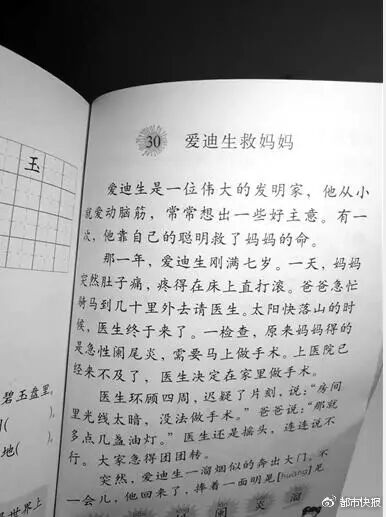 玉
碧玉盘里,
(    ),
地(    )。
世界上
30 爱迪生救妈妈
爱迪生是一位伟大的发明家,他从小
就爱动脑筋,常常想出一些好主意。有一
次,他靠自己的聪明救了妈妈的命。
那一年,爱迪生刚满七岁。一天,妈妈
突然肚子痛,疼得在床上直打滚。爸爸急忙
骑马到几十里外去请医生。太阳快落山的时
候,医生终于来了。一检查,原来妈妈得的
是急性阑尾炎,需要马上做手术。上医院已
经来不及了,医生决定在家里做手术。
医生环顾四周,迟疑了片刻,说:“房间
里光线太暗,没法做手术。”爸爸说:“那就
多点几盏油灯。”医生还是摇头,连连说不
行。大家急得团团转。
突然,爱迪生一溜烟似的奔出大门,不
一会儿,他回来了,捧着一面明晃[huǎng]晃
阑 炎 溜
都市快报